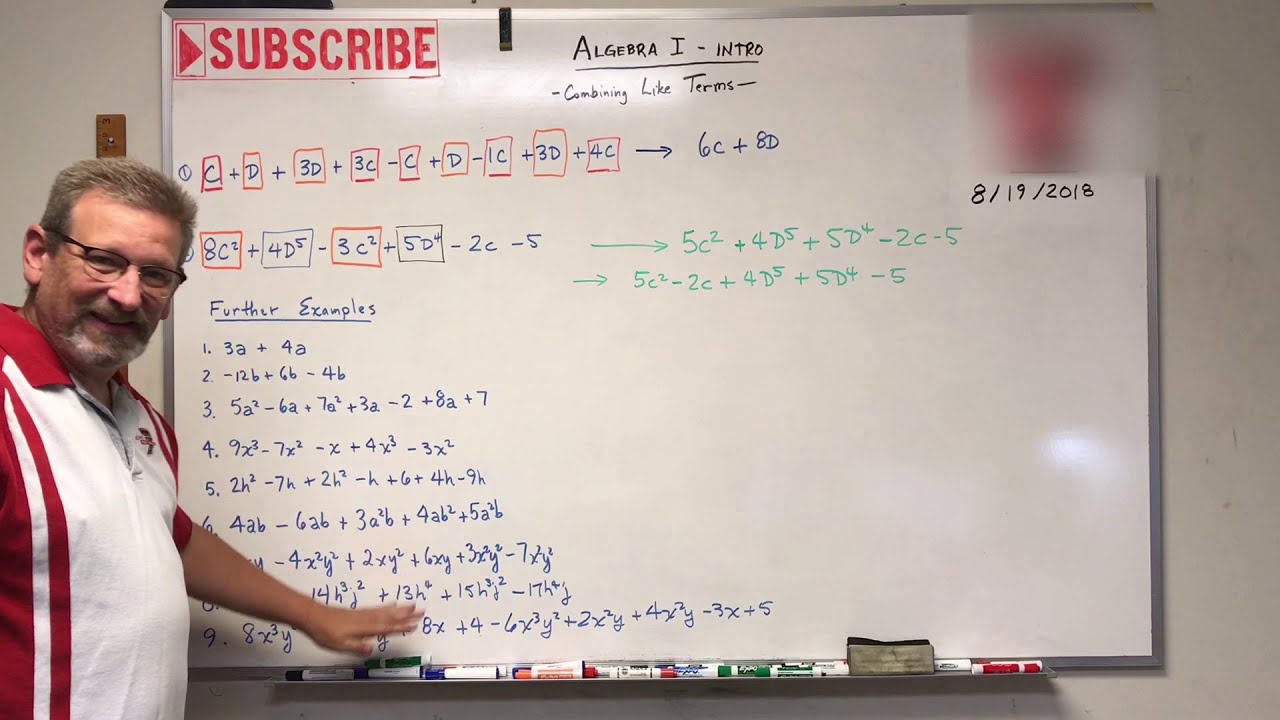 SUBSCRIBE
ALGEBRA I - INTRO
- Combining Like Terms -
8/19/2018
① C + D + 3D + 3C - C + D - 1C + 3D + 4C → 6C + 8D
8C² + 4D⁵ - 3C² + 5D⁴ - 2C - 5 → 5C² + 4D⁵ + 5D⁴ - 2C - 5
→ 5C² - 2C + 4D⁵ + 5D⁴ - 5
Further Examples
1. 3a + 4a
2. -12b + 6b - 4b
3. 5a² - 6a + 7a² + 3a - 2 + 8a + 7
4. 9x³ - 7x² - x + 4x³ - 3x²
5. 2h² - 7h + 2h² - h + 6 + 4h - 9h
6. 4ab - 6ab + 3a²b + 4ab² + 5a²b
y - 4x²y² + 2xy² + 6xy + 3x²y² - 7x²y²
14h³j² + 13h⁴ + 15h³j² - 17h⁴j
9. 8x³y y + 8x + 4 - 6x³y² + 2x²y + 4x²y - 3x + 5